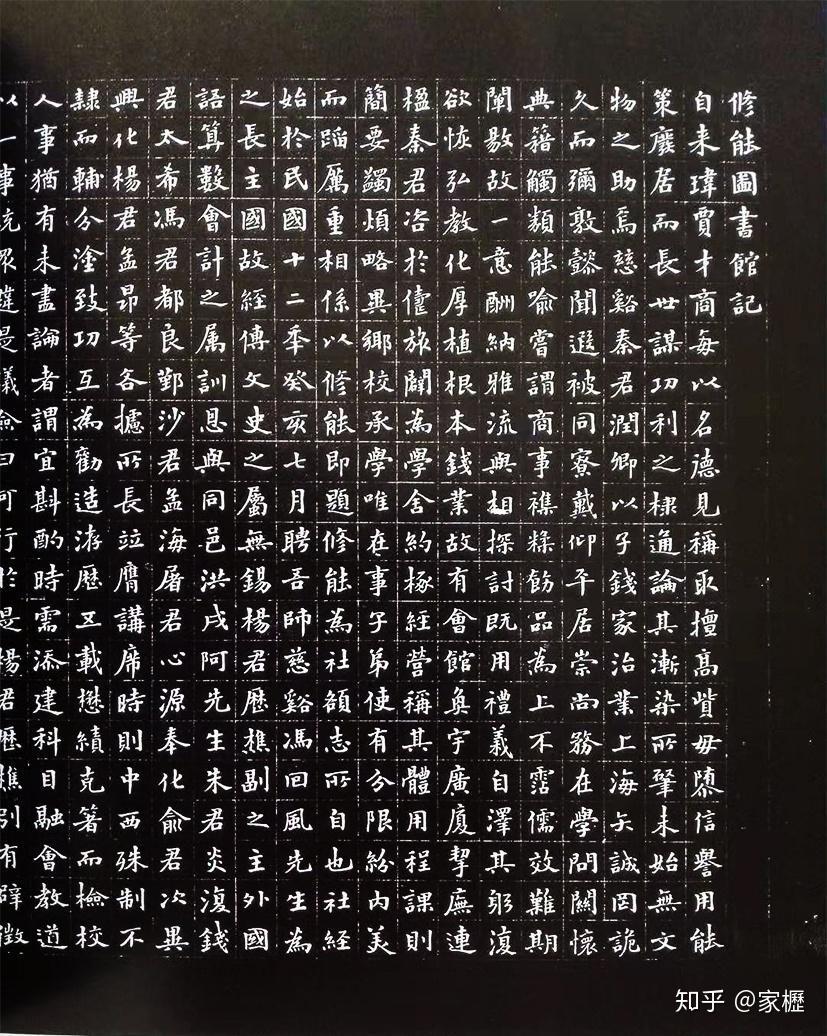 修能圖書館記
自来瑋賈才商每以名德見稱取擅高貲毋隳信譽用能
策廢居而長世謀功利之棣通論其漸染所肇未始無文
物之助焉慈谿秦君潤卿以子錢家治業上海矢誠罔詭
久而彌敦懿聞遐被同寮戴仰平居崇尚務在學問闗懷
典籍觸類能喻嘗謂商事襍糅飭品為上不霑儒效難期
闡敭故一意酬納雅流與相探討既用禮義自澤其躬復
欲恢弘教化厚植根本錢業故有會館奐宇廣廈挈廡連
楹秦君咨於旅闢為學舍約椓經營稱其體用程課則
簡要蠲煩略異鄉校承學唯在事子弟使有分限紛内美
而蹈厲重相係以修能即題修能為社額志所自也社經
始於民國十二年癸亥七月聘吾師慈谿馮回風先生為
之長主國故經傳文史之屬無錫楊君歷樵副之主外國
語算數會計之属訓與同邑洪戌阿先生朱君炎復錢
君太希馮君都良鄞沙君孟海屠君心源奉化俞君次異
興化楊君孟昂等各據所長竝膺講席時則中西殊制不
隸而輔分塗致功互為勸造洊歷五載懋績克箸而檢校
人事猶有未盡論者謂宜斟酌時需添建科目融會教道
以一事統衆是議僉曰可行於是楊君歷樵別有辟徵
知乎 @家櫪